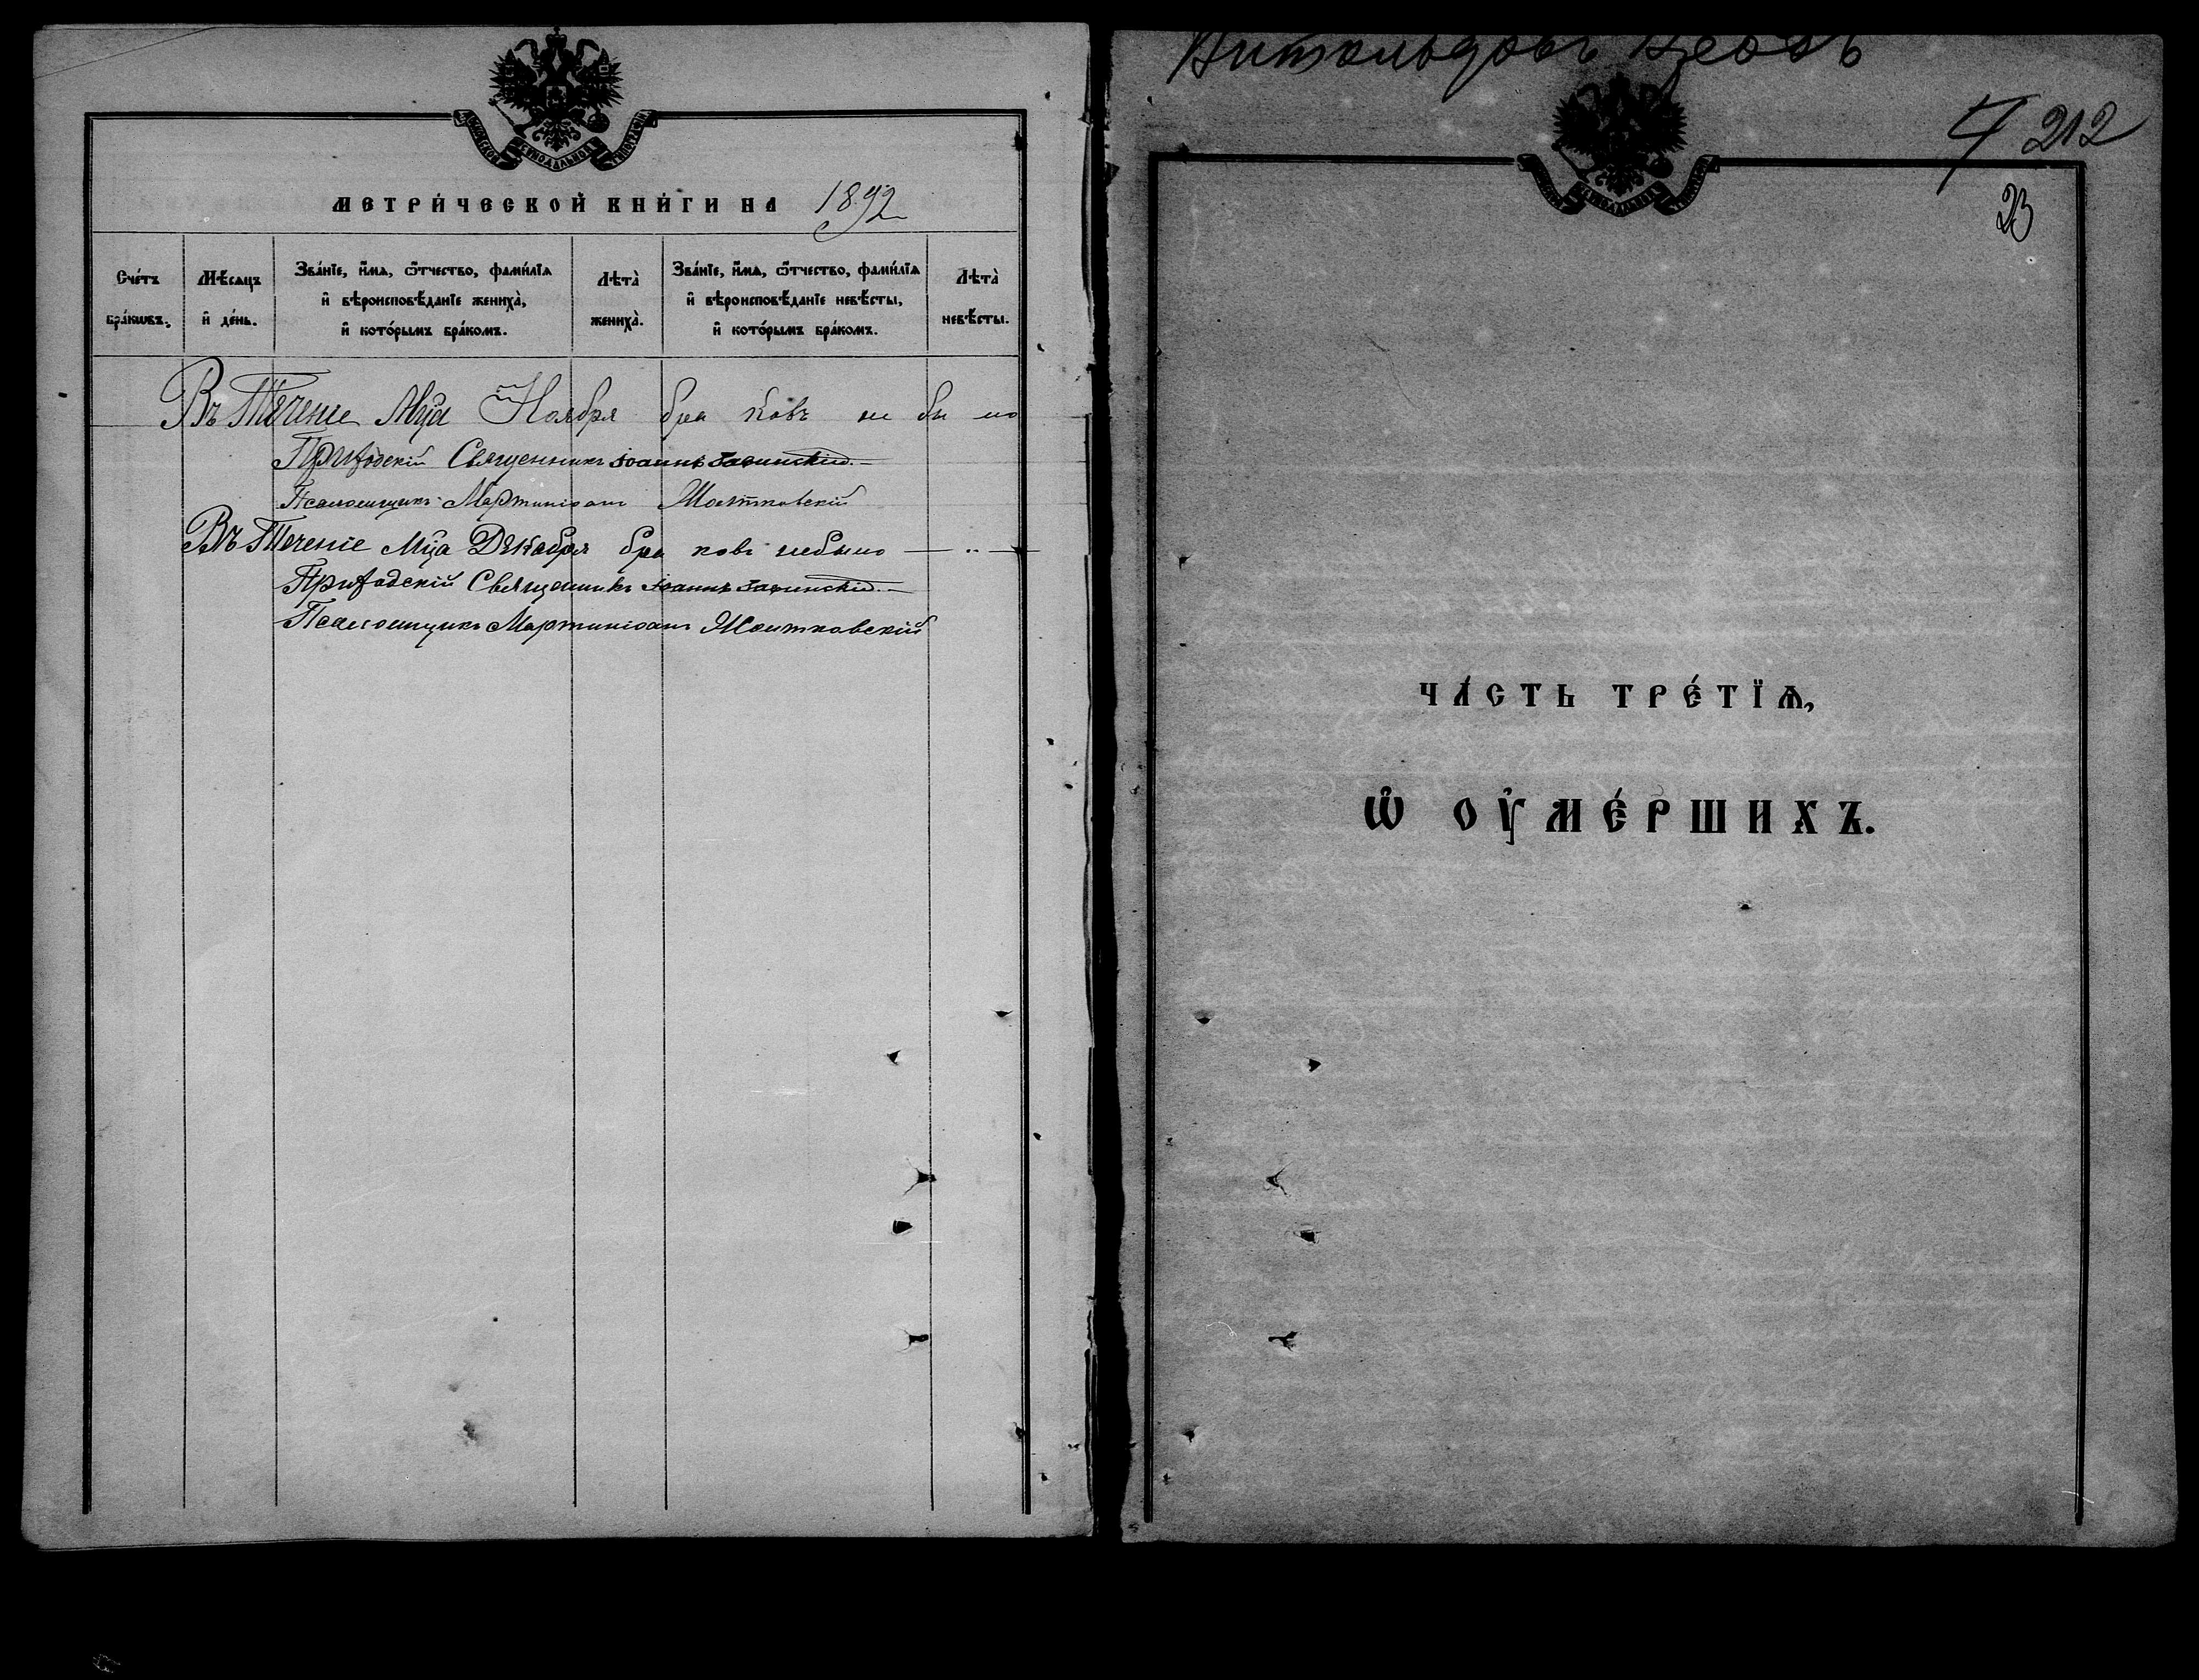 МОСКОВСКОЙ СѴНОДАЛЬНОЙ ТИПОГРАФІИ
МЕТРИ́ЧЕСКОЙ КНИ́ГИ НА 1892
Сче́тъ бра́кѡвъ.
Мѣ́сяцъ и҆ де́нь.
Зва́нїе, и҆́мѧ, ѻ҆́тчество, фами́лїѧ
и҆ вѣроисповѣ́данїе жениха̀,
и҆ кото́рымъ бра́комъ.
Лѣта̀
жениха̀.
Зва́нїе, и҆́мѧ, ѻ҆́тчество, фами́лїѧ
и҆ вѣроисповѣ́данїе невѣ́сты,
и҆ кото́рымъ бра́комъ.
Лѣта̀
невѣ́сты.
Въ Теченіе Мца Ноября бра ковъ не бы ло
Приходскій Священникъ Іоаннъ
Псаломщикъ Мартиніанъ
Въ Теченіе Мца Декабря бра ковъ небыло
Приходскій Священникъ Іоаннъ
Псаломщикъ Мартиніанъ
212
23
ЧА́СТЬ ТРЕ́ТЇѦ,
Ѡ҆ ОУ҆МЕ́РШИХЪ.